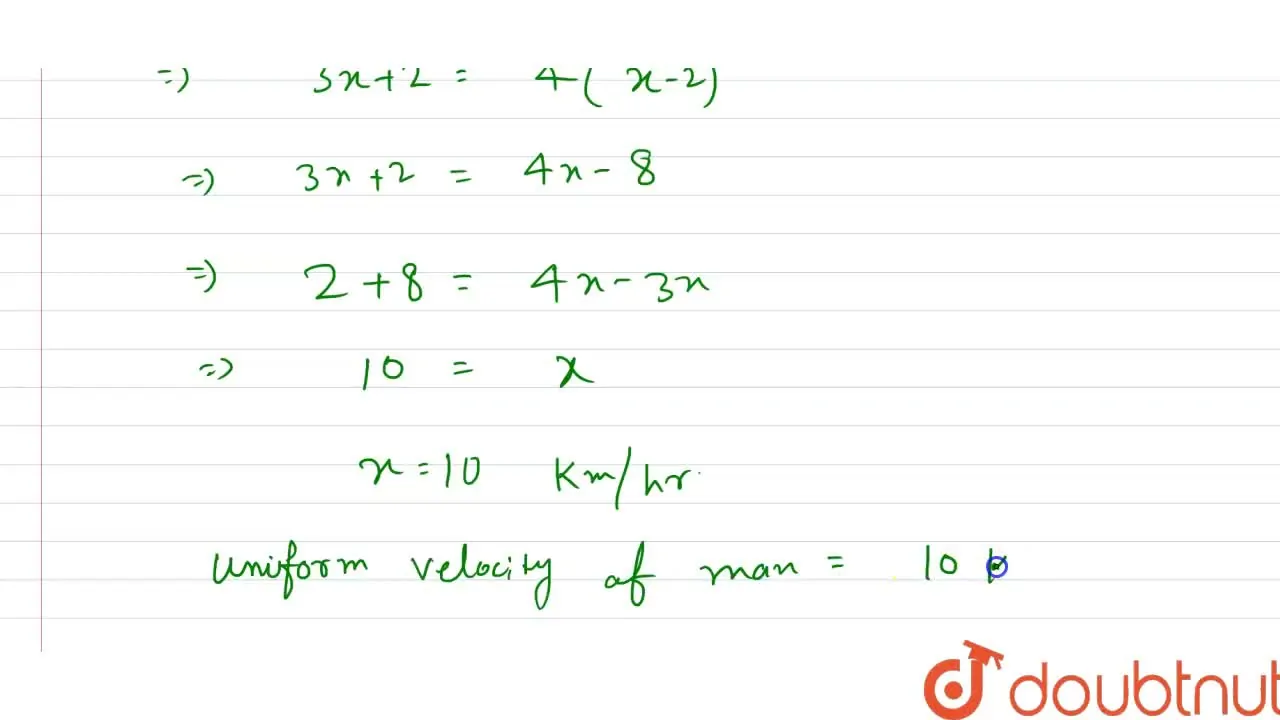 =) 3x+2 = 4( x-2)
=) 3x+2 = 4x-8
=) 2+8 = 4x-3x
=) 10 = x
x=10 Km/hr
Uniform velocity of man = 10 k
doubtnut